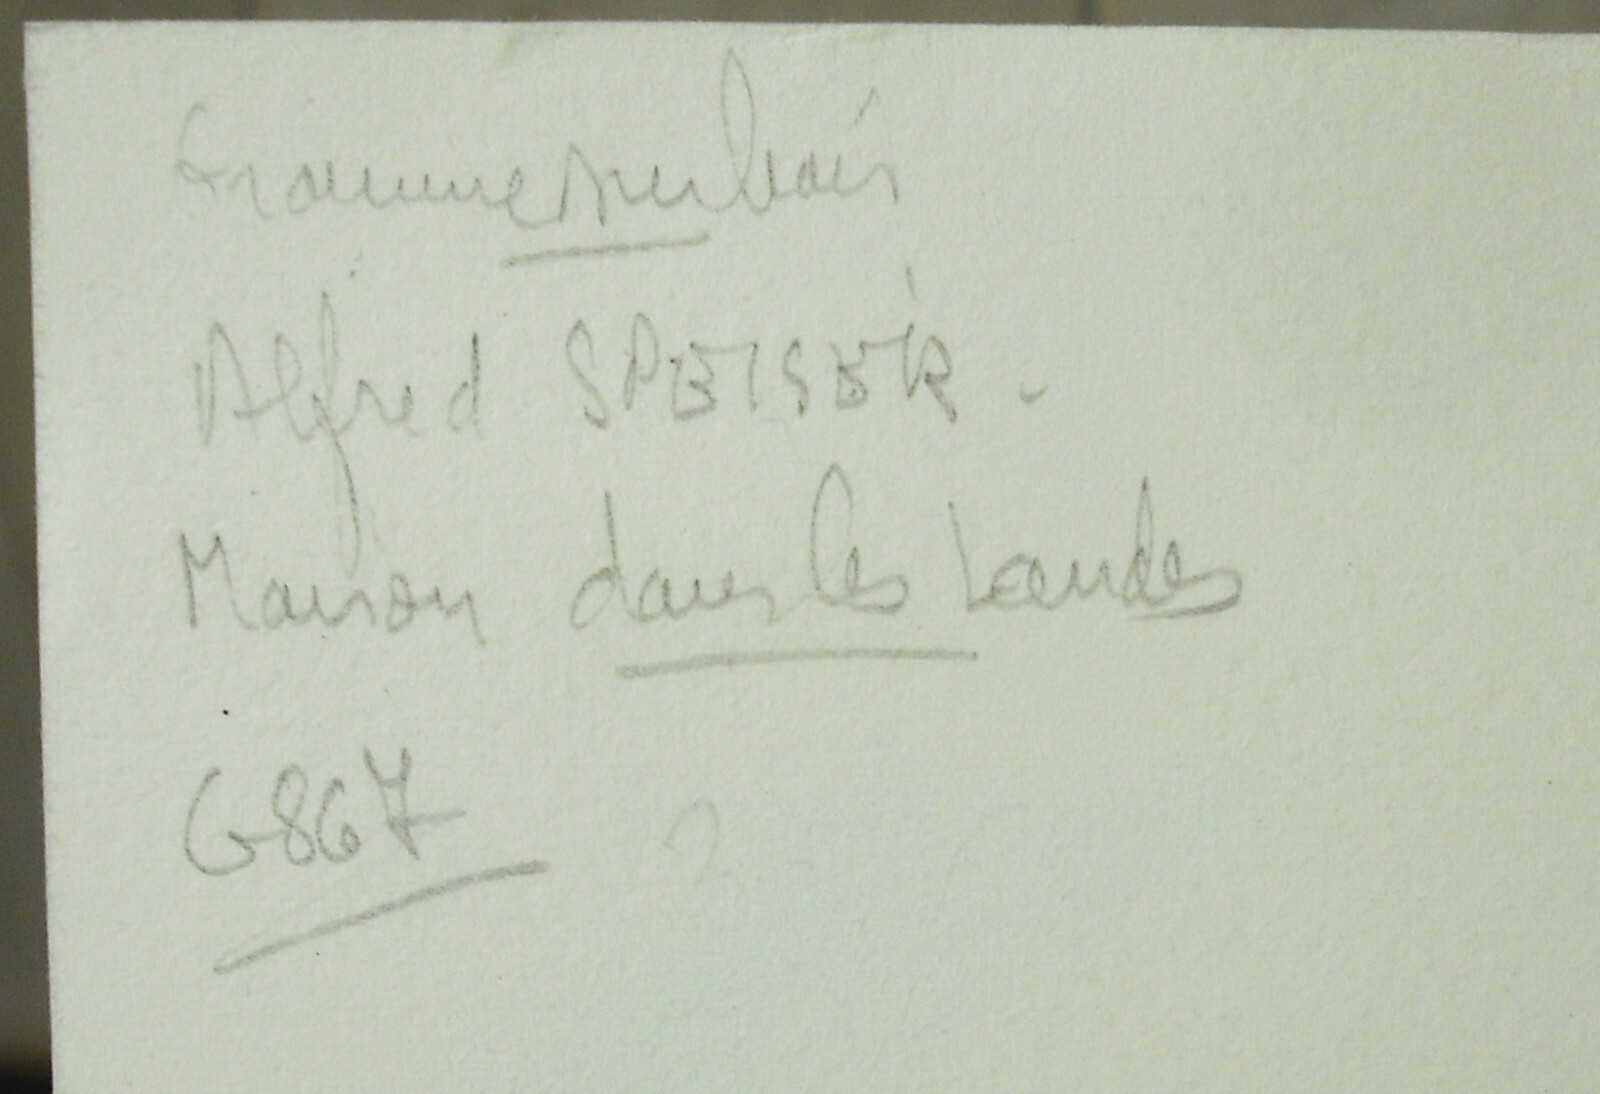 Gravure sur bois
Alfred SPEISER.
Maison dans les Landes
G867